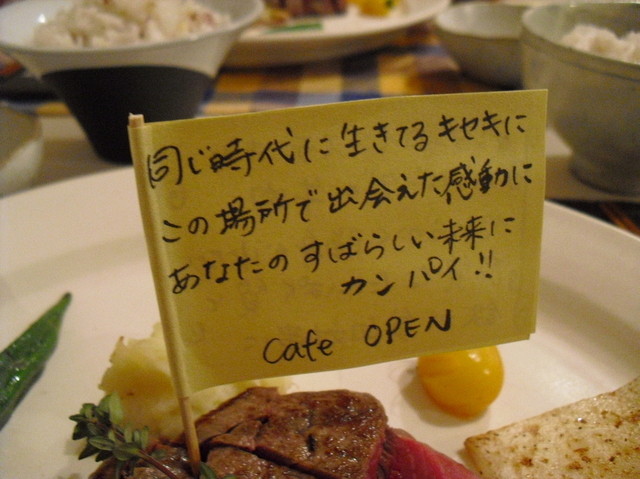 同じ時代に生きてるキセキに
この場所で出会えた感動に
あなたのすばらしい未来に
カンパイ!!
Cafe OPEN